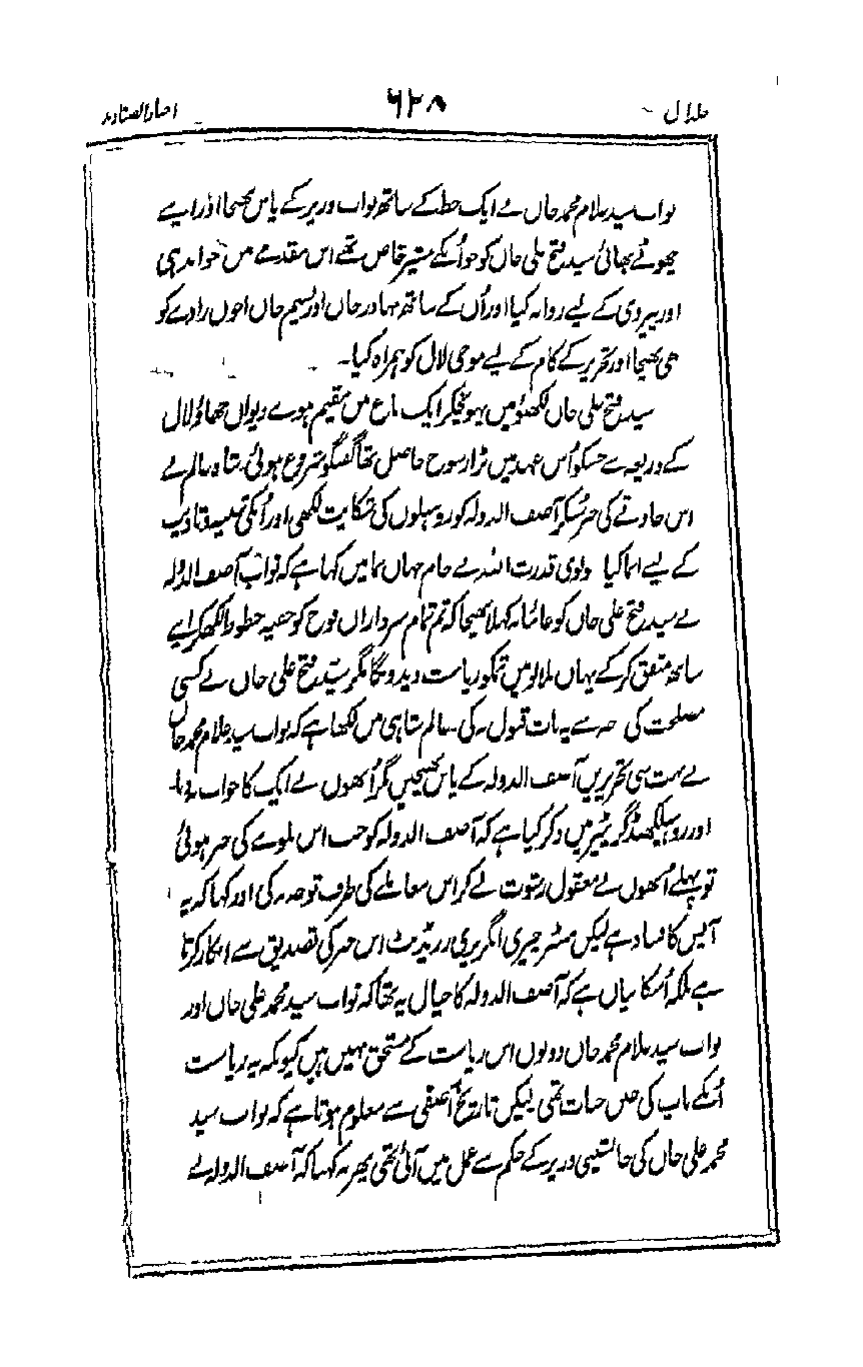 جلد اول
۶۲۸
اخبار الصنادید
نواب سید غلام محمد خاں نے ایک خط کے ساتھ نواب وزیر کے پاس بھیجا اور اپنے
چھوٹے بھائی سید فتح علی خاں کو جو اُنکے مشیر خاص تھے اس مقدمے میں جوابدہی
اور پیروی کے لیے روانہ کیا اور اُن کے ساتھ بہادر خاں اور نسیم خاں اخوں زادے کو
بھی بھیجا اور تحریر کے کام کے لیے موجی لال کو ہمراہ کیا۔
سید فتح علی خاں لکھنؤ میں پہونچکر ایک باغ میں مقیم ہوے دیوان جھاؤ لال
کے ذریعہ سے جسکو اُس عہد میں بڑا رسوخ حاصل تھا گفتگو شروع ہوئی۔ شاہ عالم نے
اس حادثے کی خبر سُنکر آصف الدولہ کو روہیلوں کی شکایت لکھی اور اُنکی تنبیہ و تادیب
کے لیے ایما کیا مولوی قدرت اللہ نے جام جہاں نما میں کہا ہے کہ نواب آصف الدولہ
نے سید فتح علی خاں کو غائبانہ کہلا بھیجا کہ تم تمام سرداران فوج کو خفیہ خطوط لکھکر اپنے
ساتھ متفق کر کے یہاں بلالو میں تمکو ریاست دیدوں گا مگر سید فتح علی خاں نے کسی
مصلحت کی وجہ سے یہ بات قبول نہ کی۔ عالم شاہی میں لکھا ہے کہ نواب سید غلام محمد خاں
نے بہت سی تحریریں آصف الدولہ کے پاس بھیجیں مگر اُنھوں نے ایک کا جواب نہ دیا۔
اور روہیلکھنڈ گزیٹیر میں ذکر کیا ہے کہ آصف الدولہ کو جب اس بلوے کی خبر ہوئی
تو پہلے اُنھوں نے معقول رشوت لے کر اس معاملے کی طرف توجہ نہ کی اور کہا کہ یہ
آپس کا فساد ہے لیکن مسٹر چیری انگریزی رزیڈنٹ اس خبر کی تصدیق سے انکار کرتا
ہے بلکہ اُسکا بیان ہے کہ آصف الدولہ کا خیال یہ تھا کہ نواب سید محمد علی خاں اور
نواب سید غلام محمد خاں دونوں اس ریاست کے مستحق نہیں ہیں کیونکہ یہ ریاست
اُنکے باپ کی حین حیات تھی لیکن تاریخ آصفی سے معلوم ہوتا ہے کہ نواب سید
محمد علی خاں کی جانشینی وزیر کے حکم سے عمل میں آئی تھی پھر یہ کہنا کہ آصف الدولہ نے